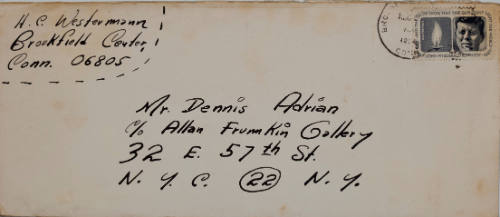 H. C. Westermann
Brookfield Center,
Conn. 06805
Mr. Dennis Adrian
c/o Allan Frumkin Gallery
32 E. 57th St.
N. Y. C. 22 N. Y.